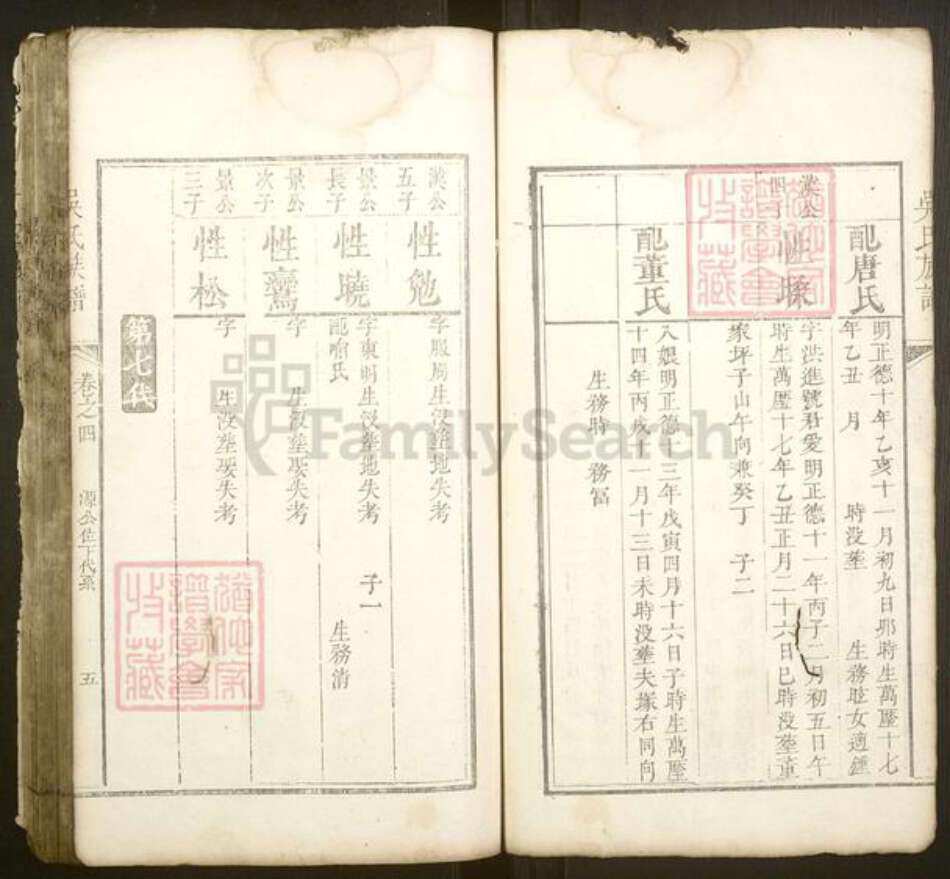 吳氏族譜
配唐氏
明正德十年乙亥十一月初九日卯時生萬曆十七
年乙丑 月 時沒塟 生務眩女適鍾
漢公
四子
性
字洪進號君愛明正德十一年丙子二月初五日午
時生萬曆十七年乙丑正月二十六日巳時沒塟董
家坪子山午向兼癸丁 子二
配董氏
入娘明正德十三年戊寅四月十六日子時生萬曆
十四年丙戌十一月十三日未時沒塟夫塚右同向
生務時 務冨
漢公
五子
性勉
字 生沒塟地失考
景公
長子
性曉
字東明生沒塟地失考 子一
配喻氏 生務清
景公
次子
性鸞
字 生沒塟娶失考
景公
三子
性松
字 生沒塟娶失考
第七代
吳氏族譜
卷之四
源公位下代系
五
譜學會
收藏
譜學會
收藏
FamilySearch